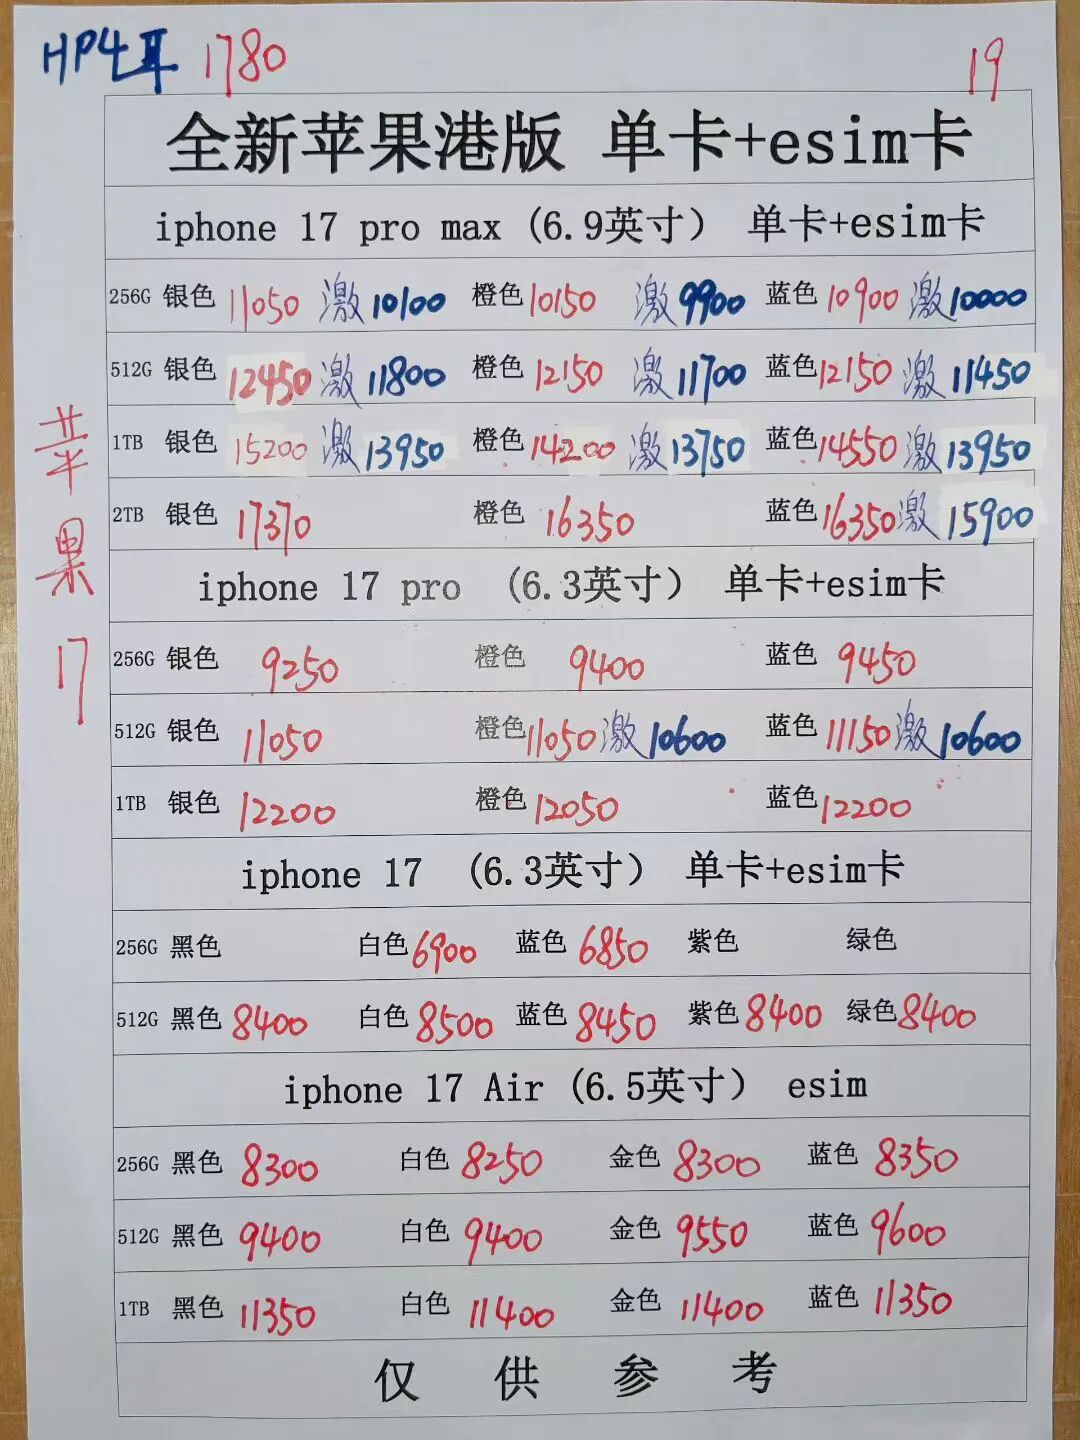 HP4耳 1780 19
全新苹果港版 单卡+esim卡
iphone 17 pro max (6.9英寸) 单卡+esim卡
256G 银色 11050 激10100 橙色10150 激9900 蓝色10900 激10000
512G 银色 12450 激11800 橙色 12150 激11700 蓝色12150 激11450
1TB 银色 15200 激13950 橙色 14200 激13750 蓝色14550 激13950
2TB 银色 17370 橙色 16350 蓝色16350 激15900
iphone 17 pro (6.3英寸) 单卡+esim卡
256G 银色 9250 橙色 9400 蓝色 9450
512G 银色 11050 橙色11050 激10600 蓝色 11150 激10600
1TB 银色 12200 橙色12050 蓝色12200
iphone 17 (6.3英寸) 单卡+esim卡
256G 黑色 白色6900 蓝色 6850 紫色 绿色
512G 黑色 8400 白色8500 蓝色 8450 紫色8400 绿色8400
iphone 17 Air (6.5英寸) esim
256G 黑色 8300 白色 8250 金色 8300 蓝色 8350
512G 黑色 9400 白色 9400 金色 9550 蓝色 9600
1TB 黑色 11350 白色 11400 金色 11400 蓝色 11350
仅供参考
苹果17